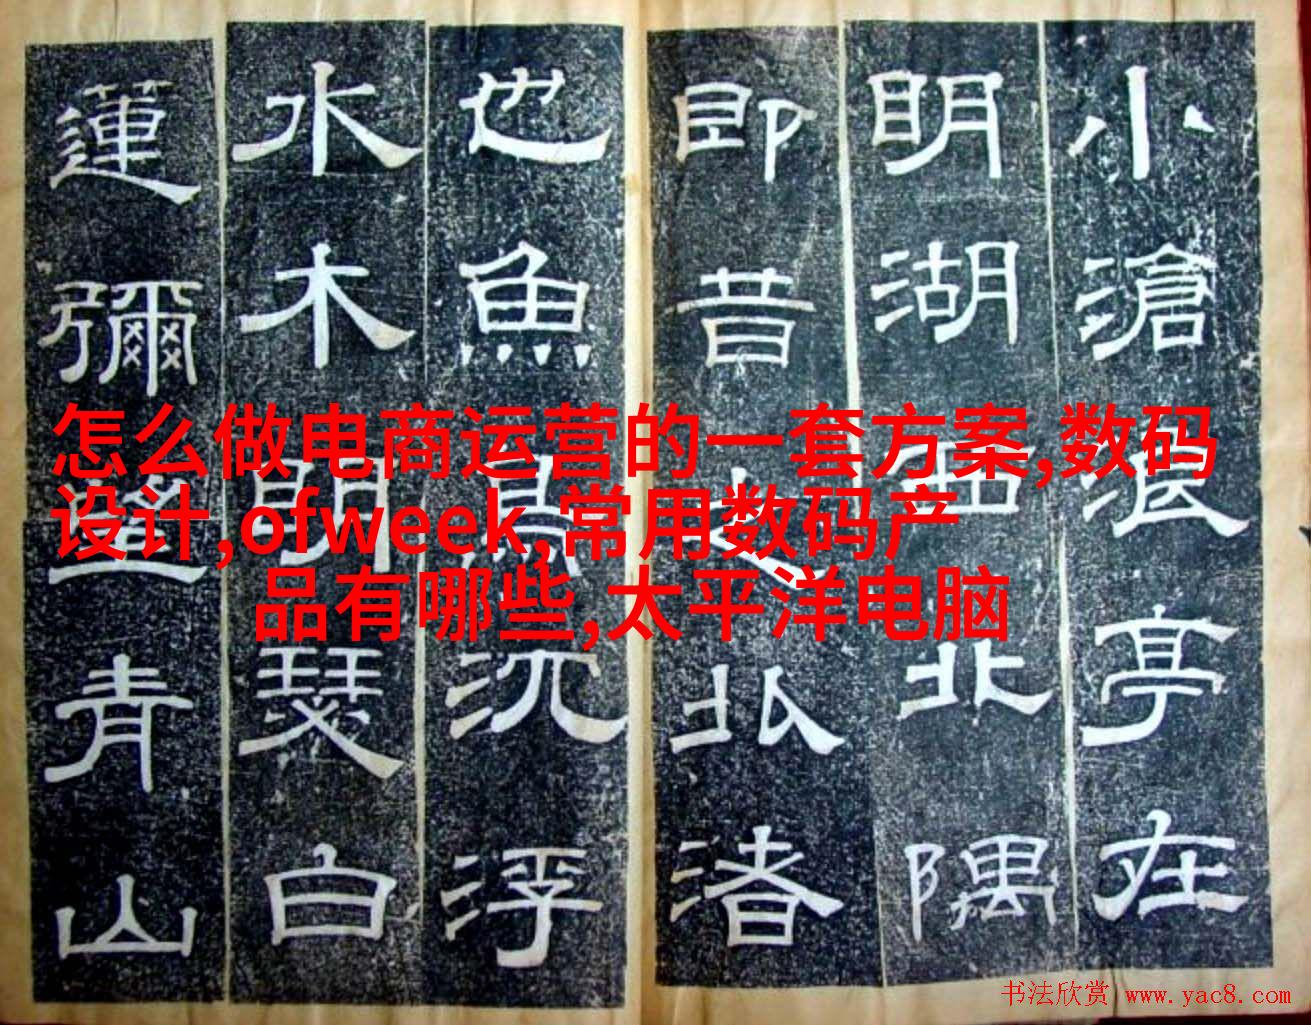 小滄浪亭在
明湖西北隅
即昔之北渚
也魚鳥沉浮
水木明瑟白
蓮彌望青山
怎么做电商运营的一套方案,数码
设计,ofweek,常用数码产
品有哪些,太平洋电脑
书法欣赏 www.yac8.com